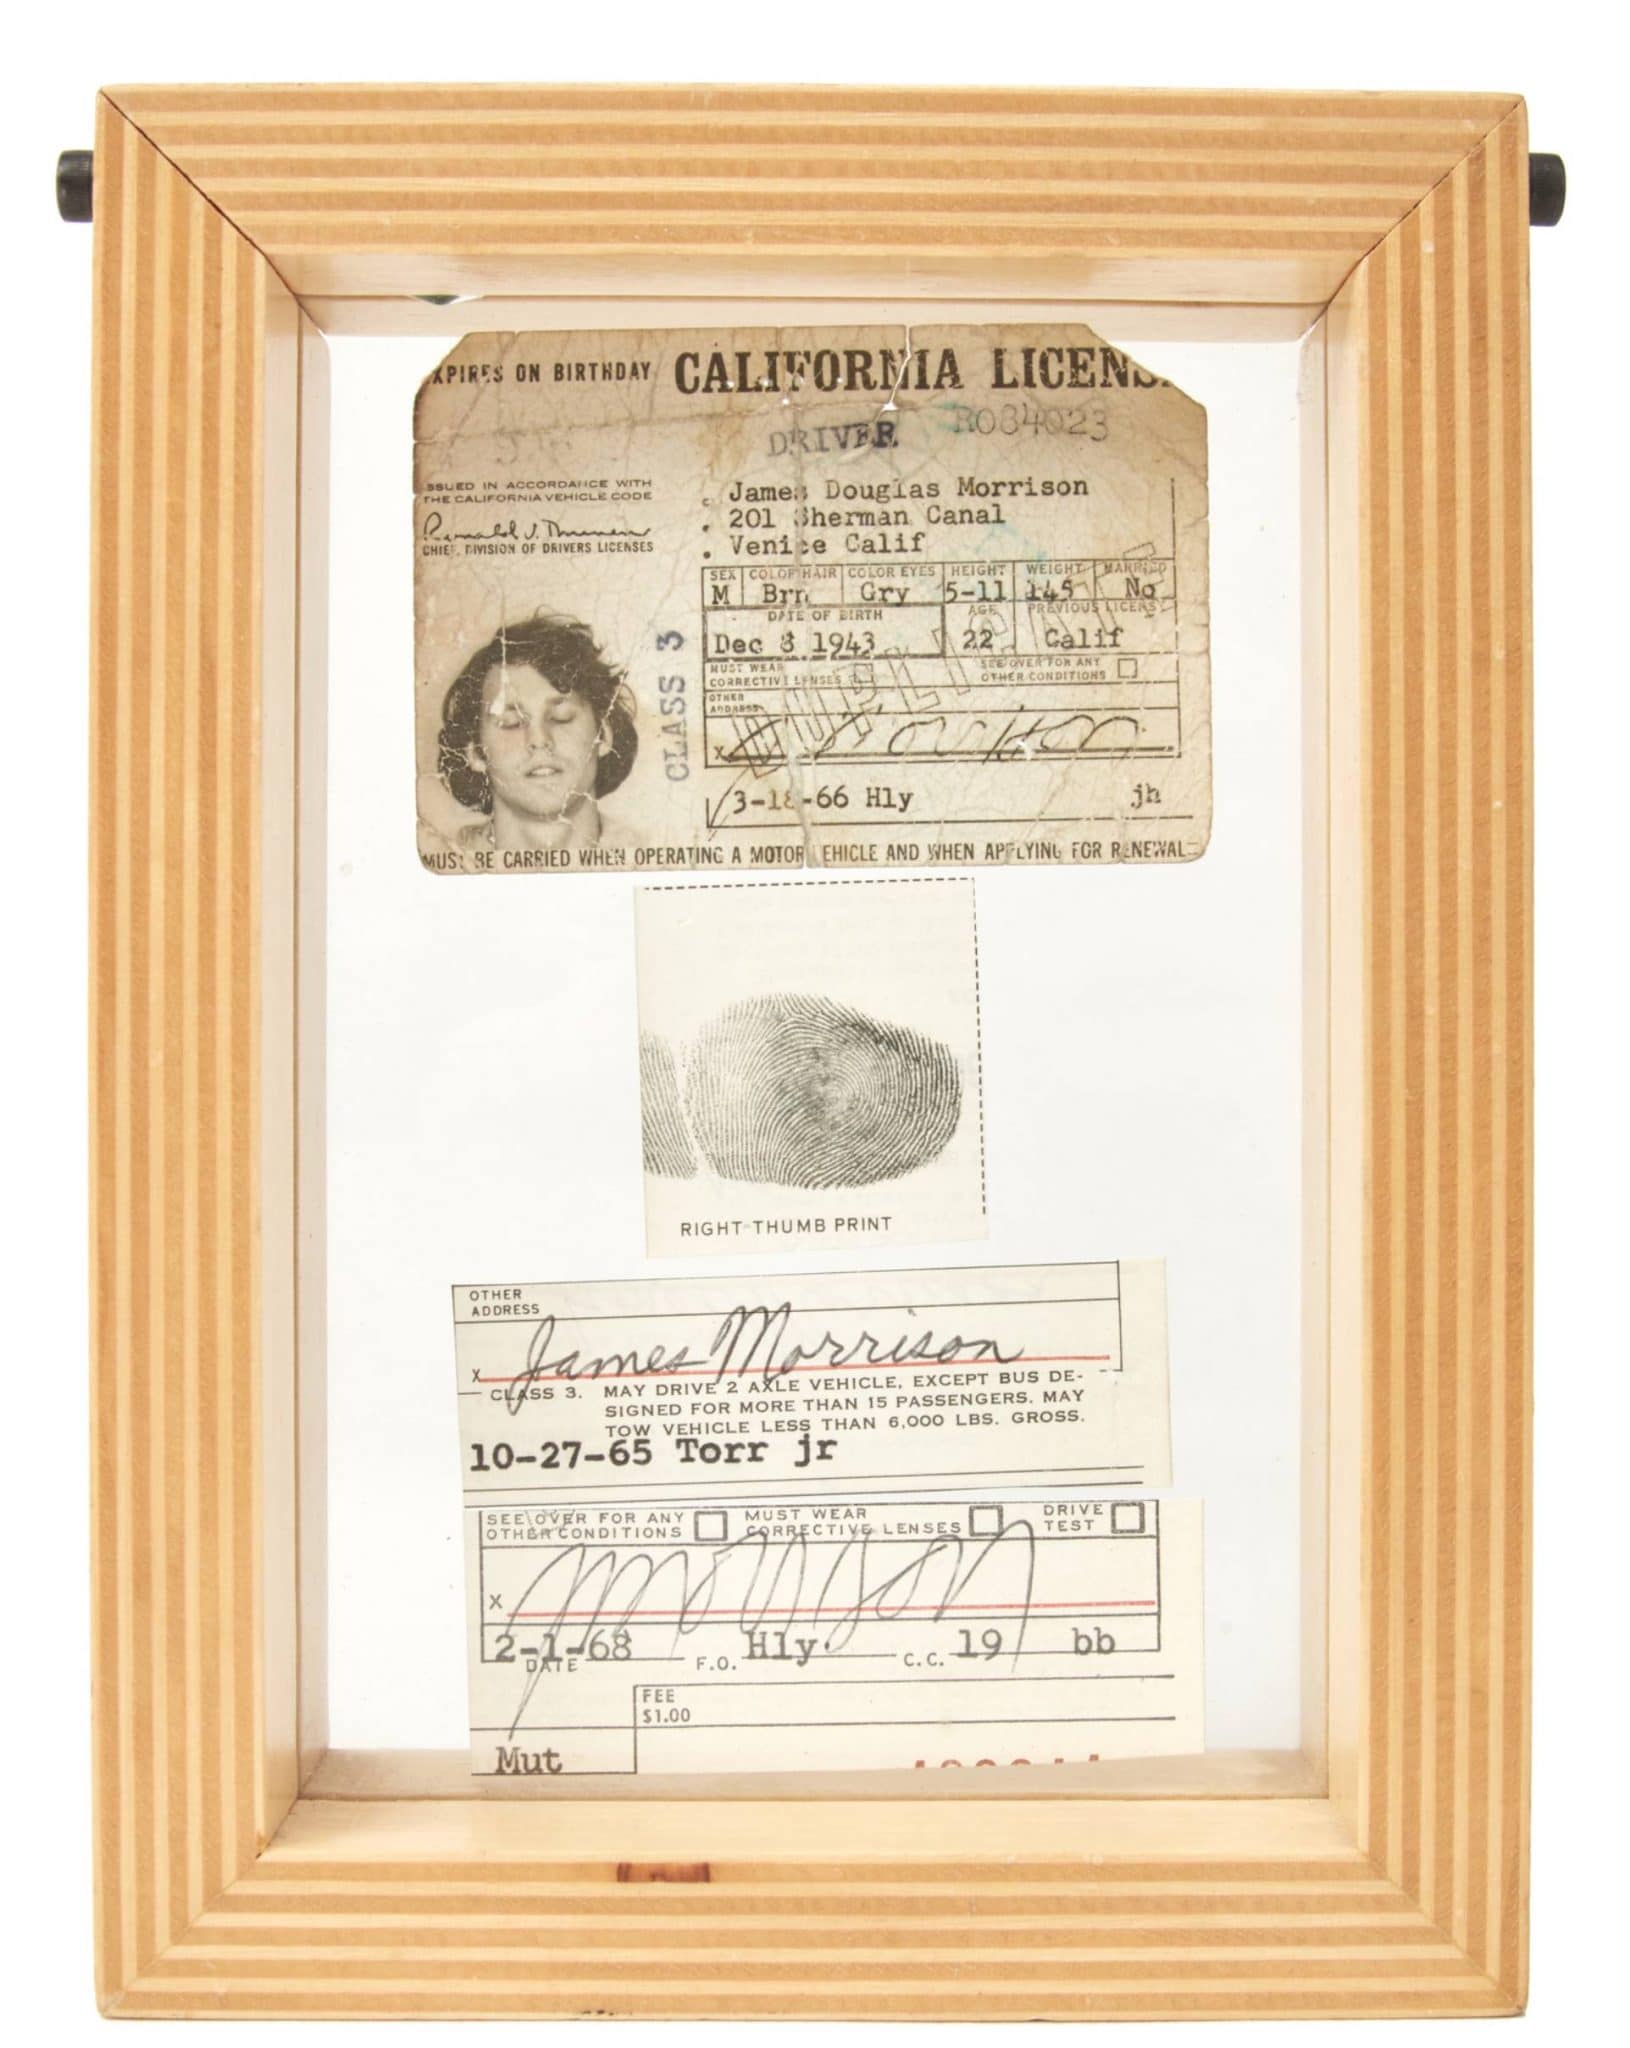 XPIRES ON BIRTHDAY CALIFORNIA LICENS
DRIVER R084023
ISSUED IN ACCORDANCE WITH
THE CALIFORNIA VEHICLE CODE
CHIEF, DIVISION OF DRIVERS LICENSES
James Douglas Morrison
201 Sherman Canal
Venice Calif
SEX COLOR HAIR COLOR EYES HEIGHT WEIGHT MARRIED
M Brn Gry 5-11 145 No
DATE OF BIRTH AGE PREVIOUS LICENSE
Dec 8 1943 22 Calif
MUST WEAR
CORRECTIVE LENSES
SEE OVER FOR ANY
OTHER CONDITIONS
OTHER
ADDRESS
DUPLICATE
CLASS 3
X
3-18-66 Hly jh
MUST BE CARRIED WHEN OPERATING A MOTOR VEHICLE AND WHEN APPLYING FOR RENEWAL
RIGHT THUMB PRINT
OTHER
ADDRESS
X James Morrison
CLASS 3. MAY DRIVE 2 AXLE VEHICLE, EXCEPT BUS DE-
SIGNED FOR MORE THAN 15 PASSENGERS. MAY
TOW VEHICLE LESS THAN 6,000 LBS. GROSS.
10-27-65 Torr jr
SEE OVER FOR ANY
OTHER CONDITIONS
MUST WEAR
CORRECTIVE LENSES
DRIVE
TEST
X Morrison
2-1-68 Hly. 19 bb
DATE F.O. C.C.
FEE
$1.00
Mut